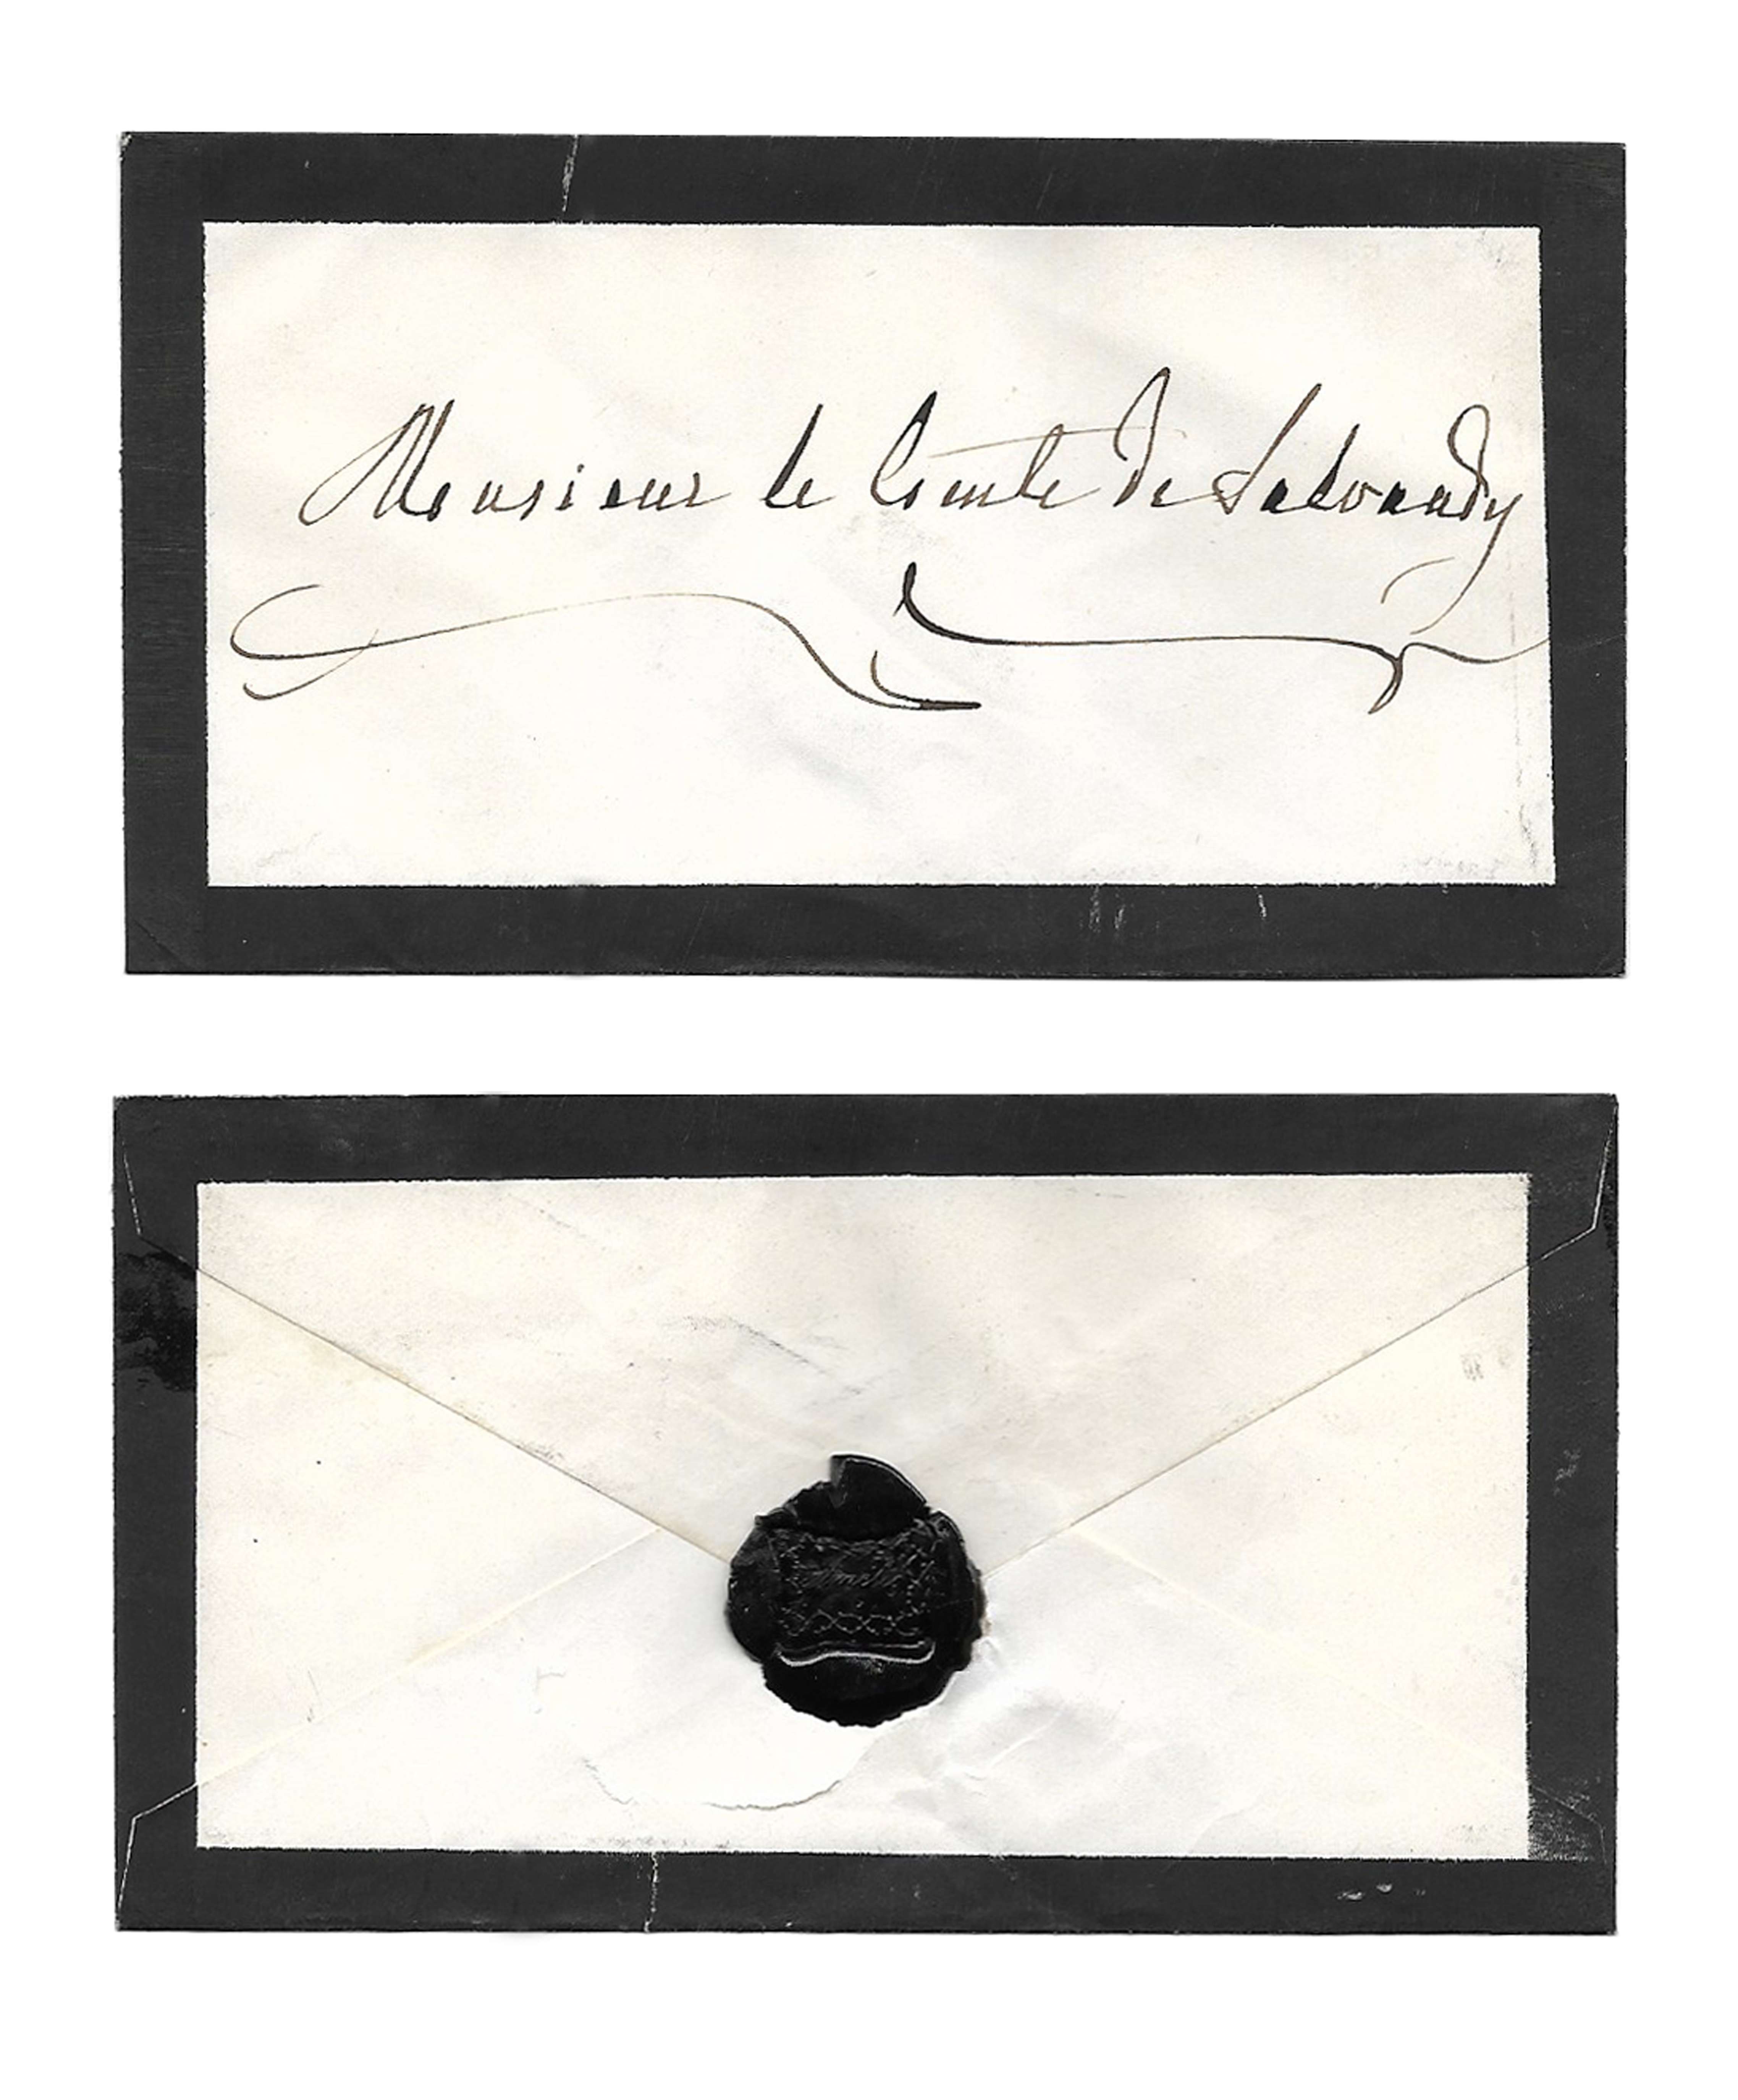 Monsieur le Comte de Salvandy